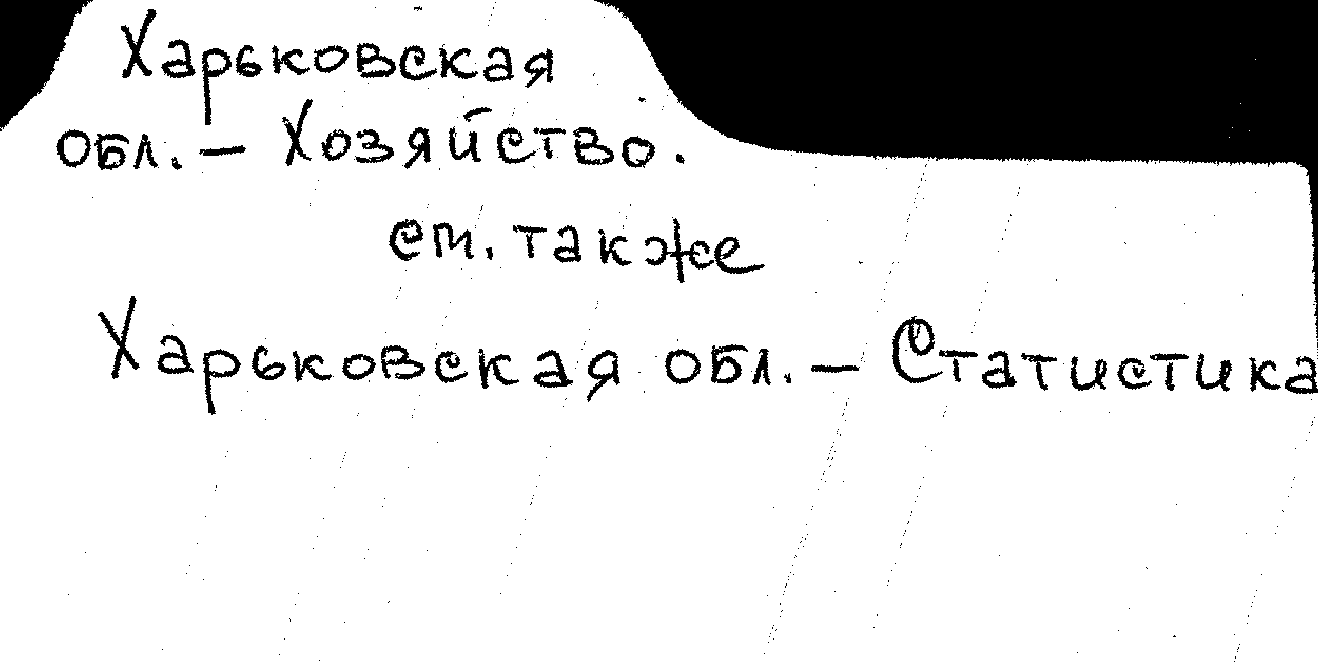 Харьковская
обл. – Хозяйство.
см. также
Харьковская обл. – Статистика